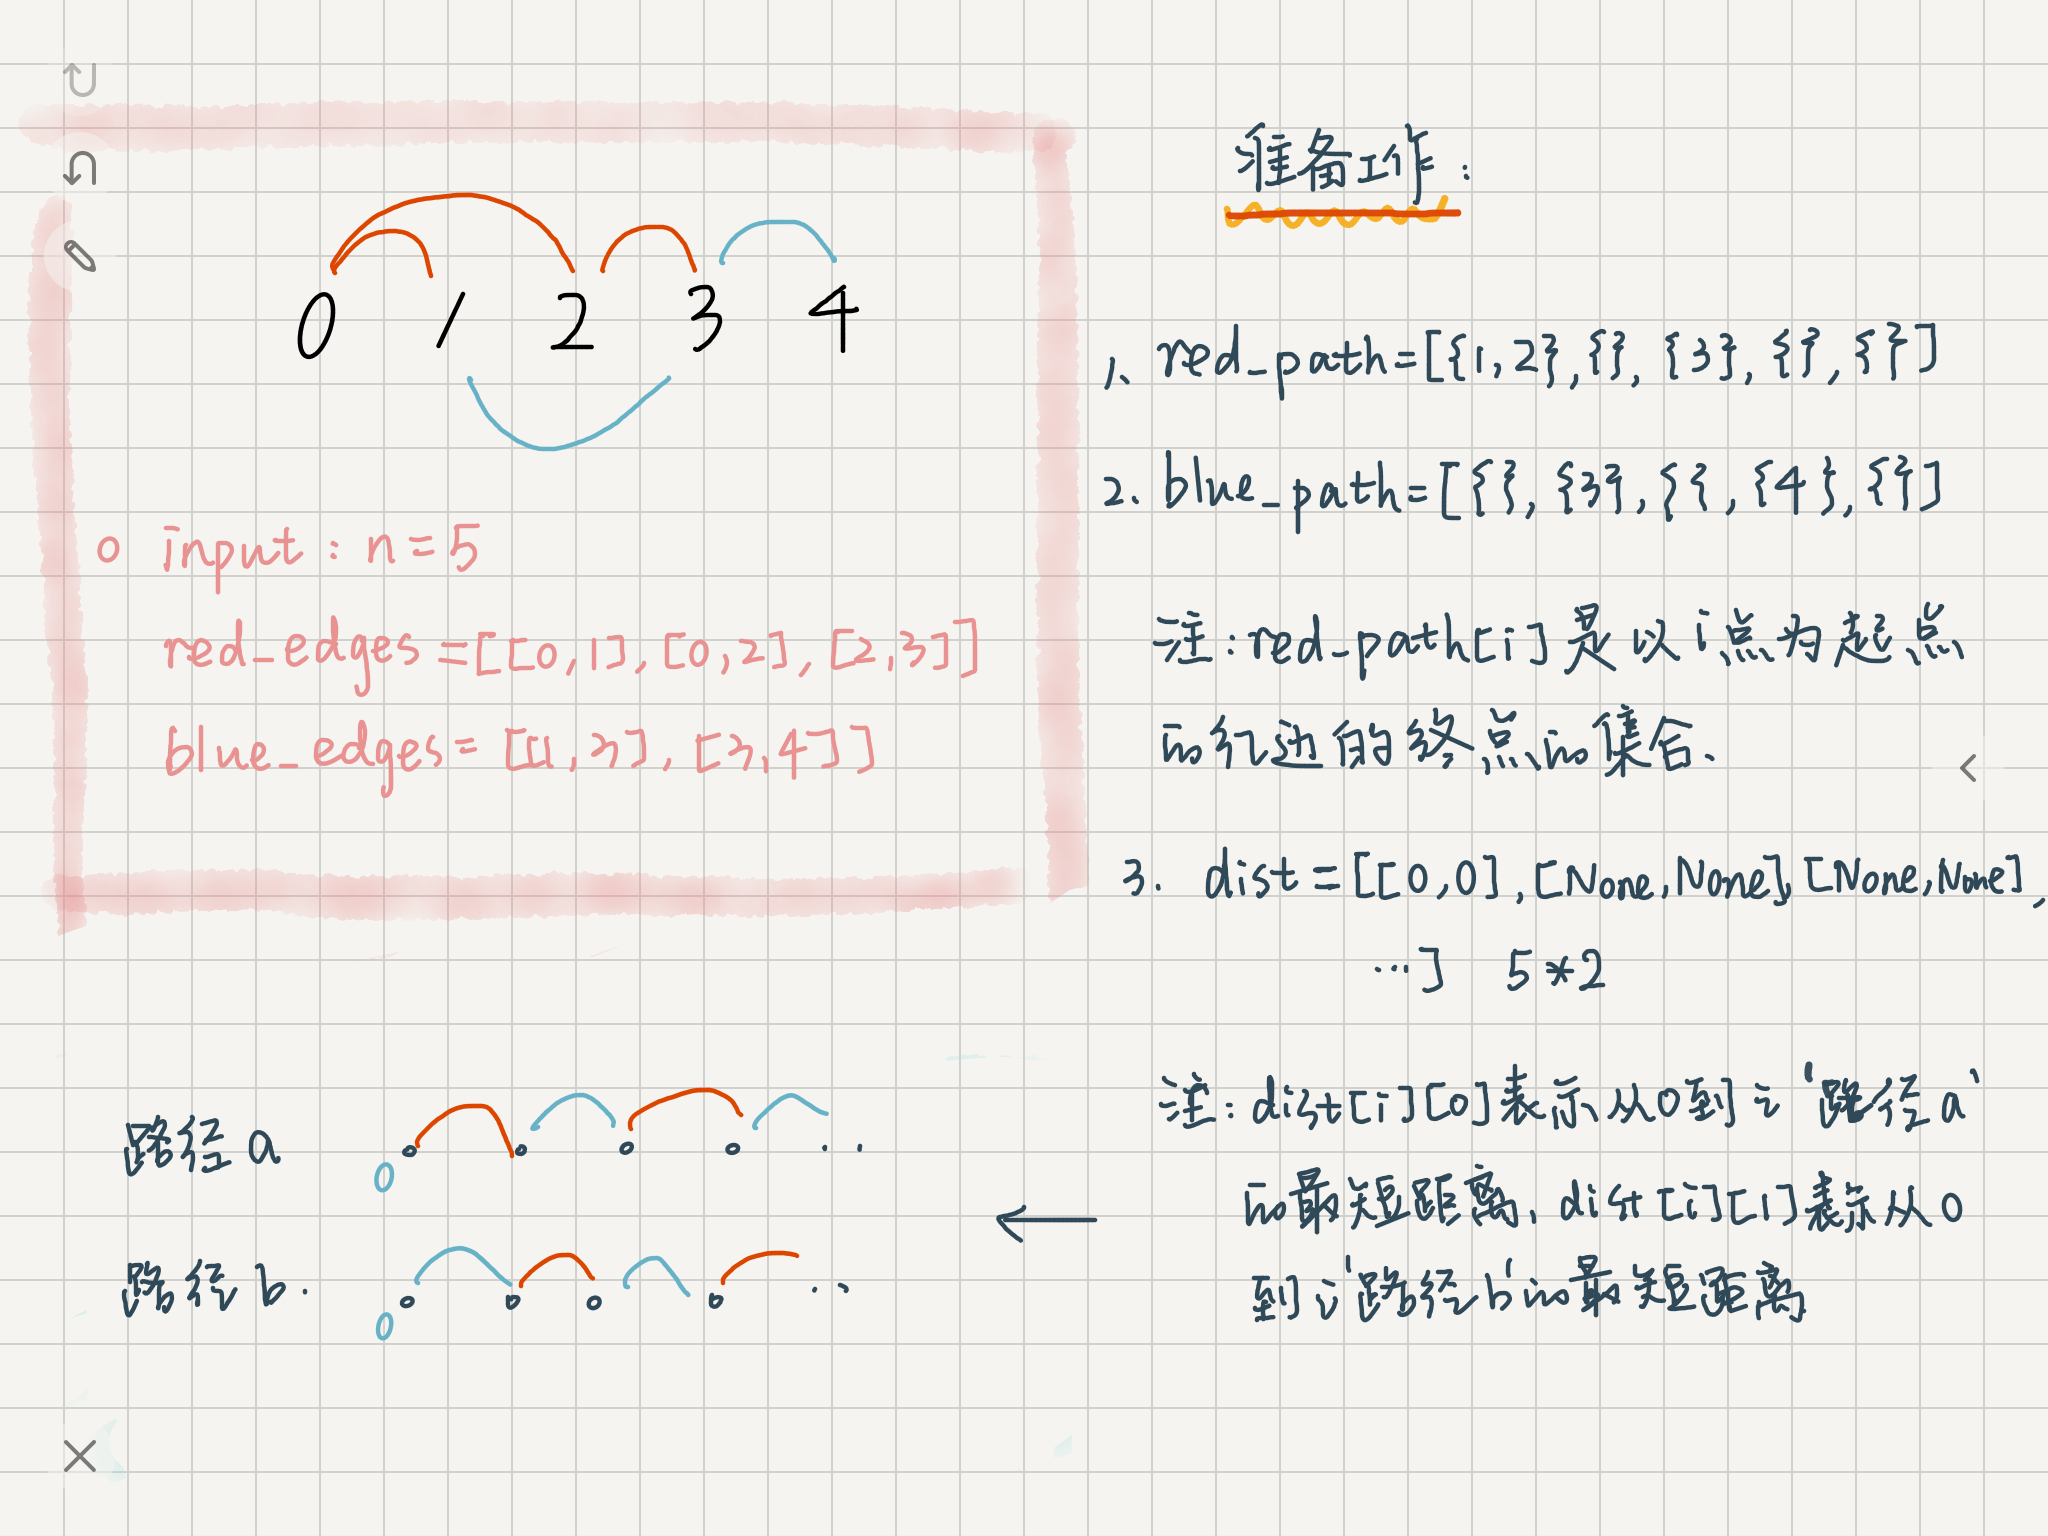 0 1 2 3 4
○ input : n=5
red_edges=[[0,1],[0,2],[2,3]]
blue_edges=[[1,3],[3,4]]
路径a
0
路径b.
0
准备工作:
1、red_path=[{1,2},{},{3},{},{}]
2. blue_path=[{},{3},{},{4},{}]
注:red_path[i]是以i点为起点
的红边的终点的集合.
3. dist=[[0,0],[None,None],[None,None],
…] 5*2
注:dist[i][0]表示从0到i‘路径a’
的最短距离,dist[i][1]表示从0
到i‘路径b’的最短距离